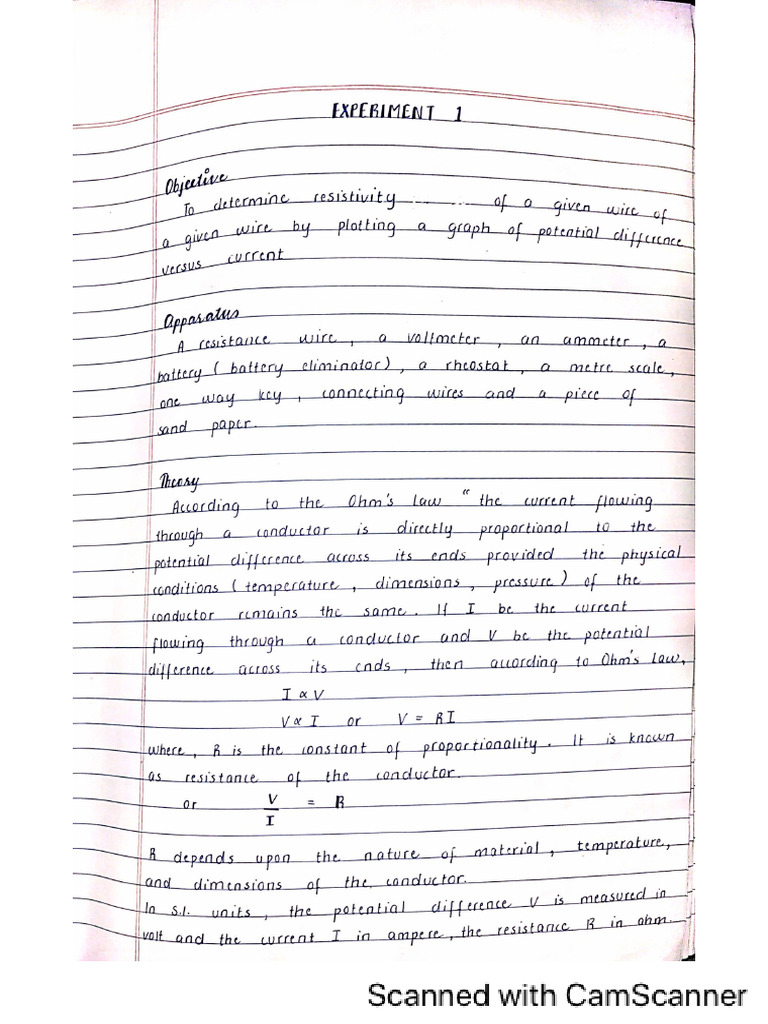 EXPERIMENT 1
Objective
To determine resistivity of a given wire of
a given wire by plotting a graph of potential difference
versus current
Apparatus
A resistance wire, a voltmeter, an ammeter, a
battery (battery eliminator), a rheostat, a metre scale,
one way key, connecting wires and a piece of
sand paper.
Theory
According to the Ohm's law " the current flowing
through a conductor is directly proportional to the
potential difference across its ends provided the physical
conditions (temperature, dimensions, pressure) of the
conductor remains the same. If I be the current
flowing through a conductor and V be the potential
difference across its ends, then according to Ohm's law,
I ∝ V
V ∝ I or V = RI
where, R is the constant of proportionality. It is known
as resistance of the conductor.
or V/I = R
R depends upon the nature of material, temperature,
and dimensions of the conductor.
In S.I. units, the potential difference V is measured in
volt and the current I in ampere, the resistance R in ohm
Scanned with CamScanner